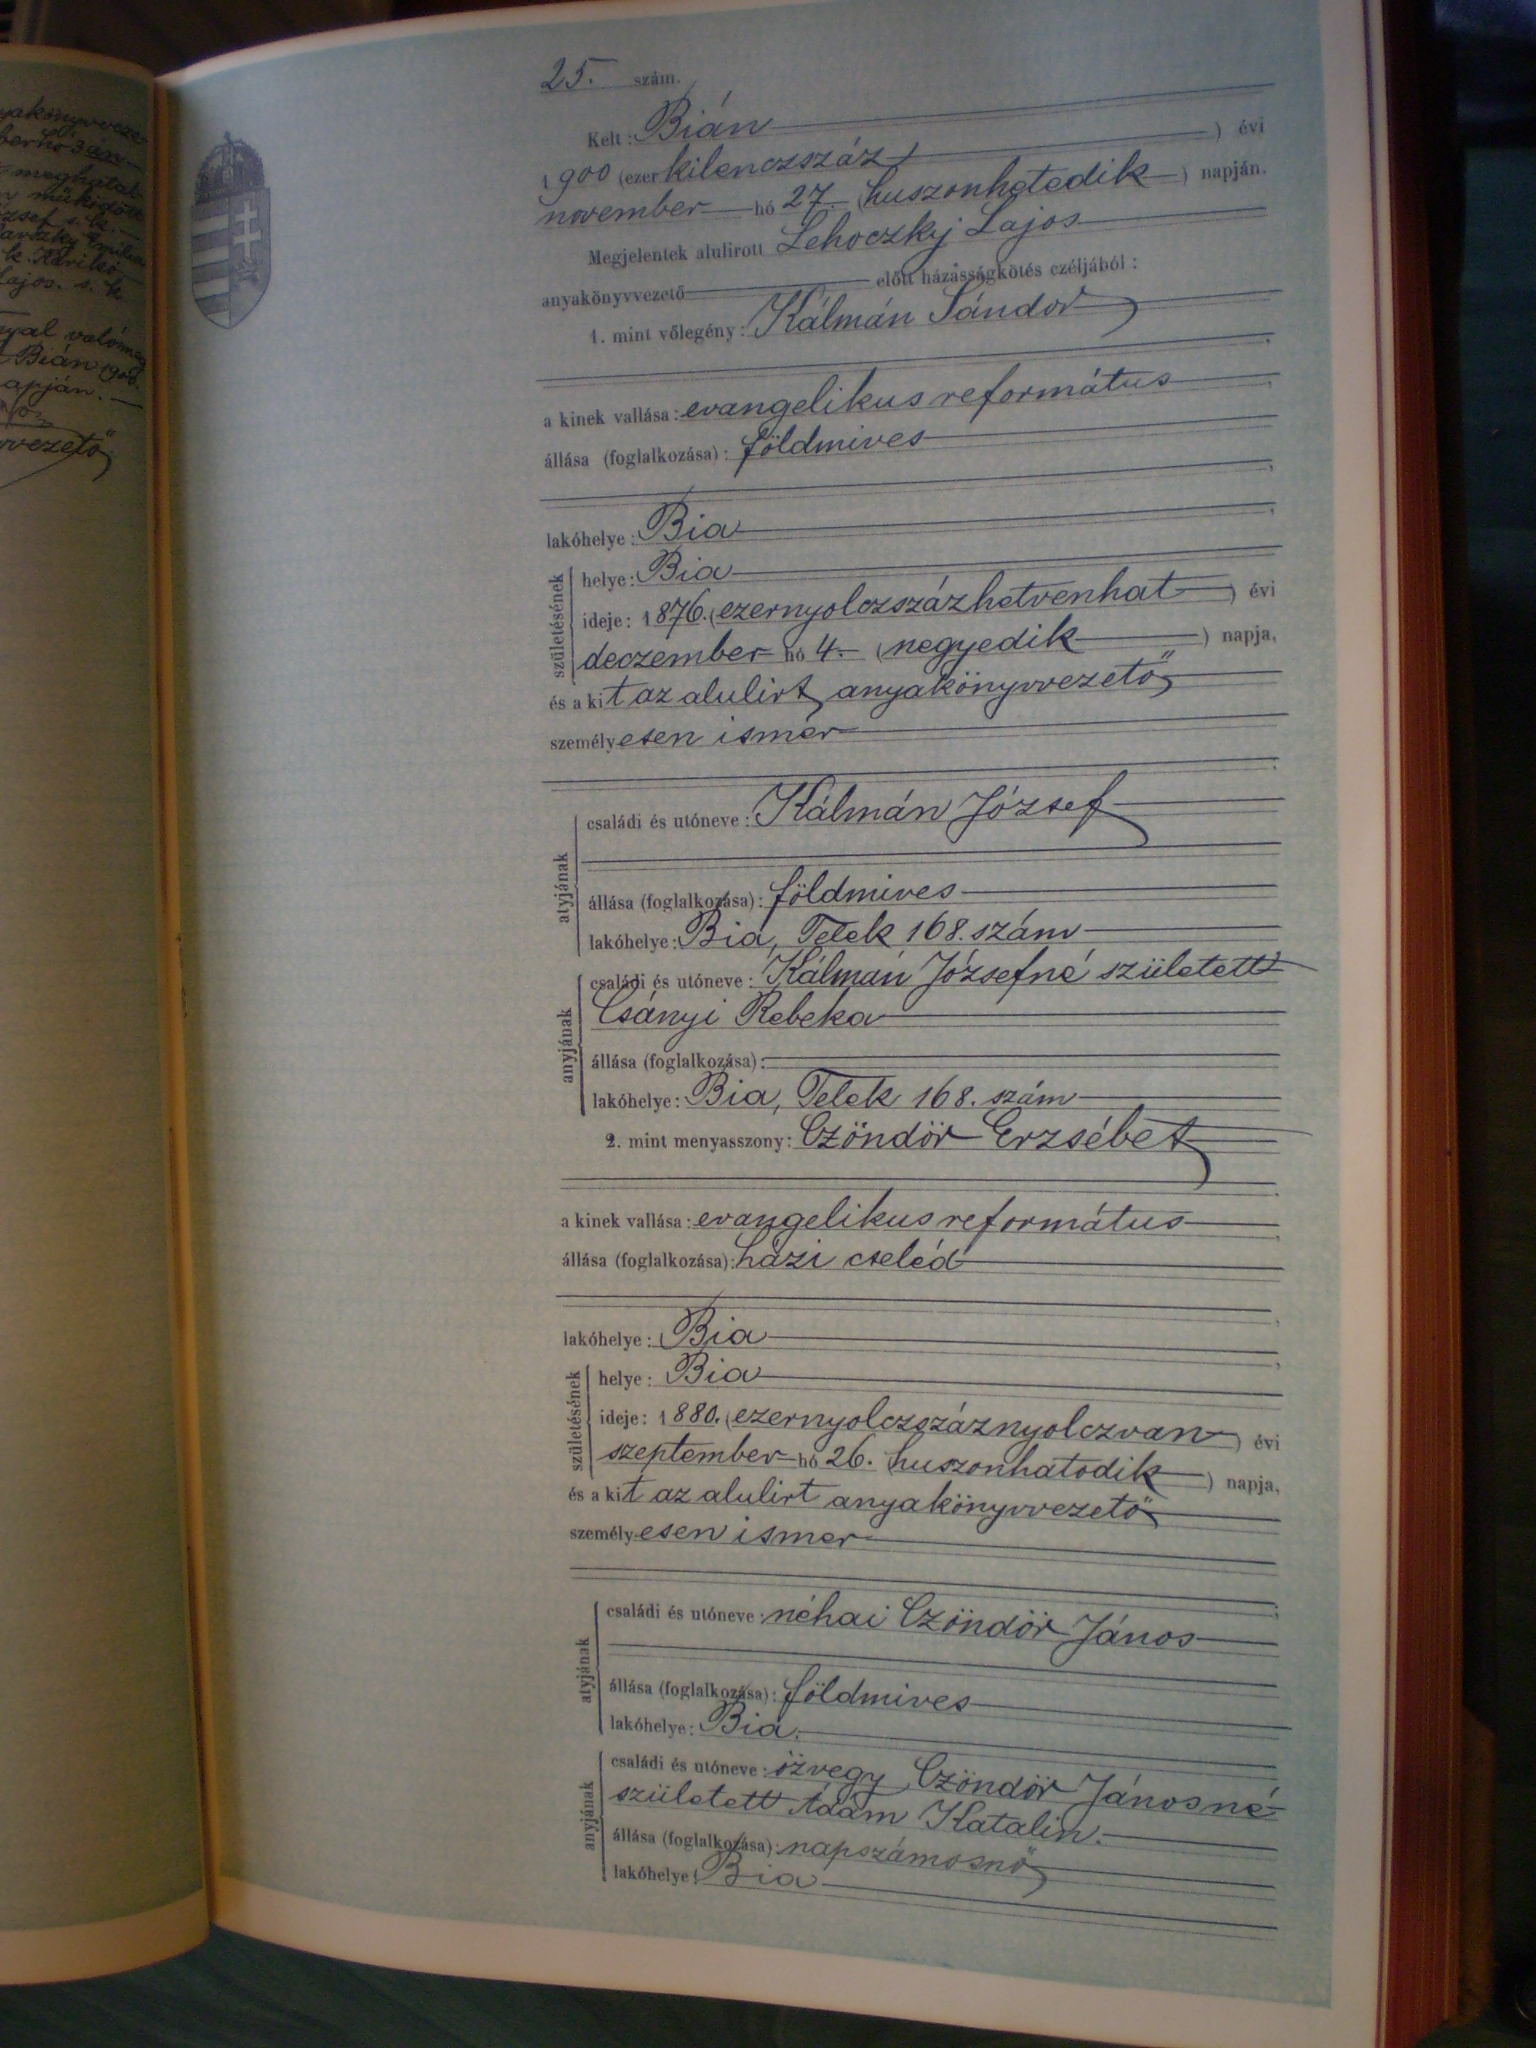 25. szám.
Kelt: Bián
1900 (ezerkilenczszáz) évi
november hó 27. (huszonhetedik) napján.
Megjelentek alulirott Lehoczky Lajos
anyakönyvvezető előtt házasságkötés czéljából:
1. mint vőlegény: Kálmán Sándor
a kinek vallása: evangelikus református
állása (foglalkozása): földmives
lakóhelye: Bia
születésének
helye: Bia
ideje: 1876. (ezernyolczszázhetvenhat) évi
deczember hó 4. (negyedik) napja,
és a kit az alulirt anyakönyvvezető
személyesen ismer
atyjának
családi és utóneve: Kálmán József
állása (foglalkozása): földmives
lakóhelye: Bia, Telek 168. szám
anyjának
családi és utóneve: Kálmán Józsefné született
Csányi Rebeka
állása (foglalkozása):
lakóhelye: Bia, Telek 168. szám
2. mint menyasszony: Czöndör Erzsébet
a kinek vallása: evangelikus református
állása (foglalkozása): házi cseléd
lakóhelye: Bia
születésének
helye: Bia
ideje: 1880. (ezernyolczszáznyolczvan) évi
szeptember hó 26. (huszonhatodik) napja,
és a kit az alulirt anyakönyvvezető
személyesen ismer
atyjának
családi és utóneve: néhai Czöndör János
állása (foglalkozása): földmives
lakóhelye: Bia.
anyjának
családi és utóneve: özvegy Czöndör Jánosné
született Ádám Katalin.
állása (foglalkozása): napszámosnő
lakóhelye: Bia